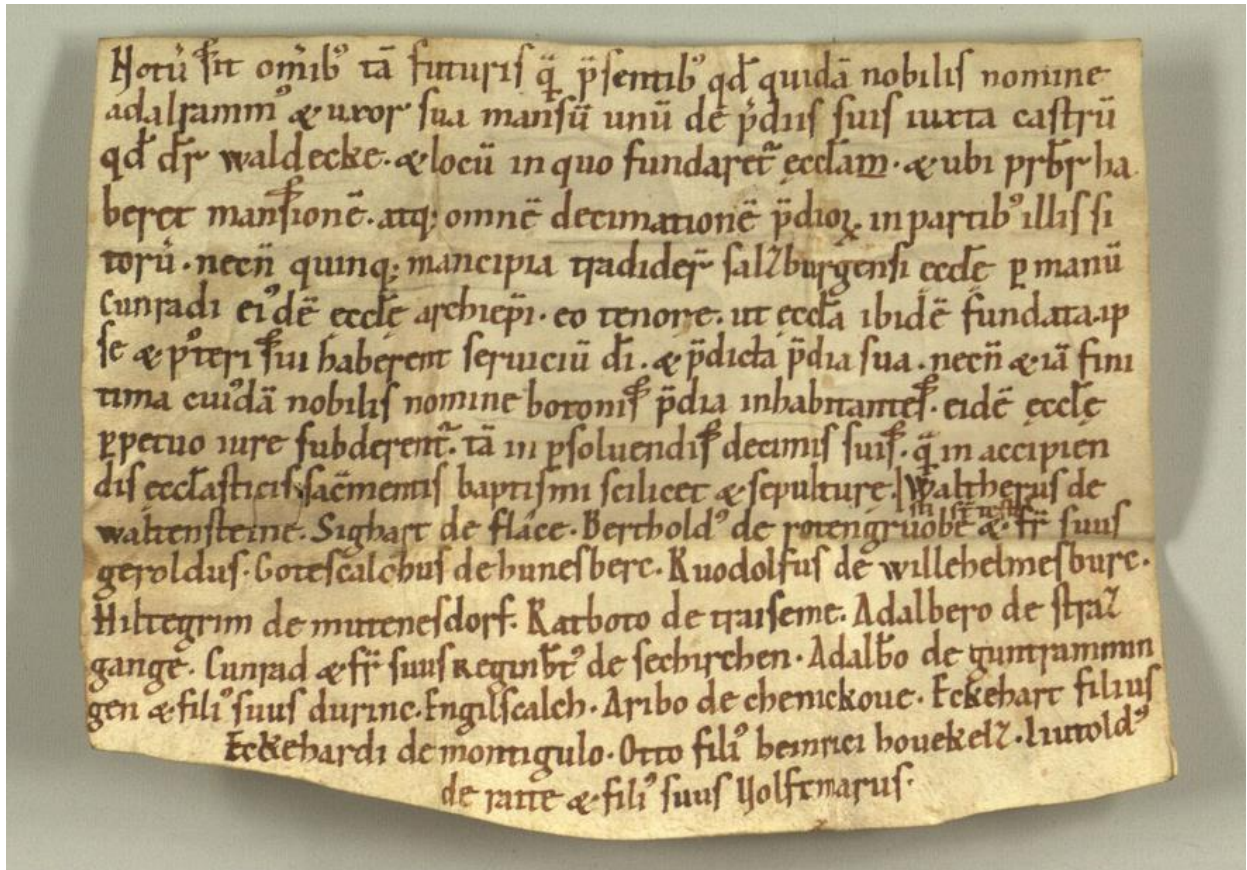 Notū sit om̄ib᷒ tā futuris q̄ p̄sentib᷒ qd̄ quidā nobilis nomine
adalramm᷒ & uxor sua mansū unū de p̄diis suis iuxta castrū
qd̄ dr̄ waldecke · & locū in quo fundaret᷑ ęccl̄am · & ubi prb̄r ha
beret mansionē · atq; omnē decimationē p̄dioꝝ in partib᷒ illis si
torū · necn̄ quinq; mancipia tradider̄ salzburgensi eccl̄ę ꝑ manū
Cunradi ei᷒dē eccl̄ę archiep̄i · eo tenore · ut ęccl̄a ibidē fundata · ip
se & p᷒teri sui haberent seruiciū dī · & p̄dicta p̄dia sua · necn̄ & iā fini
tima cui᷒dā nobilis nomine botonis p̄dia inhabitantes · eidē ęccl̄ę
ꝑpetuo iure subderent᷑ · tā in ꝑsoluendis decimis suis · q̄ in accipien
dis eccl̄asticis sac̄mentis baptismi scilicet & sepulturę · Waltherus de
waltensteine · Sighart de flāce · Berthold᷒ de rotengruobē & fr̄ suus
geroldus · Gotescalchus de hunesberc · Ruodolfus de willehelmesburc ·
Hiltegrim de mutenesdorf · Ratboto de traiseme · Adalbero de straz
gange · Cunrad & fr̄ suus Reginb̄t᷒ de sechirchen · Adalb̄o de guntrammin
gen & fili᷒ suus durinc · Engilscalch · Aribo de chemckoue · Eckehart filius
Eckehardi de montigulo · Otto fili᷒ heinrici houekelz · Liutold᷒
de ratte & fili᷒ suus Uolfcmarus ·